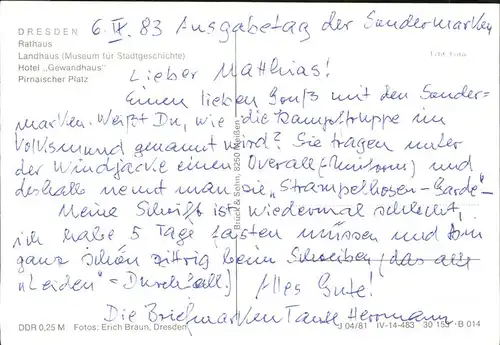 DRESDEN
Rathaus
Landhaus (Museum für Stadtgeschichte)
Hotel „Gewandhaus"
Pirnaischer Platz
6. IX. 83 Ausgabetag der Sondermarken
Lieber Matthias!
Einen lieben Gruß mit den Sonder-
marken. Weißt Du, wie die Kampftruppe im
Volksmund genannt wird? Sie tragen unter
der Windjacke einen Overall (Uniform) und
deshalb nennt man sie „Strampelhosen-Garde"-
Meine Schrift ist wiedermal schlecht,
ich habe 5 Tage fasten müssen und bin
ganz schön zittrig beim Schreiben (das alte
„Leiden" = Durchfall.) Alles Gute!
Die Briefmarken Tante Herrmann
Bruck & Sohn, 8250 Meißen
DDR 0,25 M Fotos: Erich Braun, Dresden
J 04/81 IV-14-483 30 153 B 014